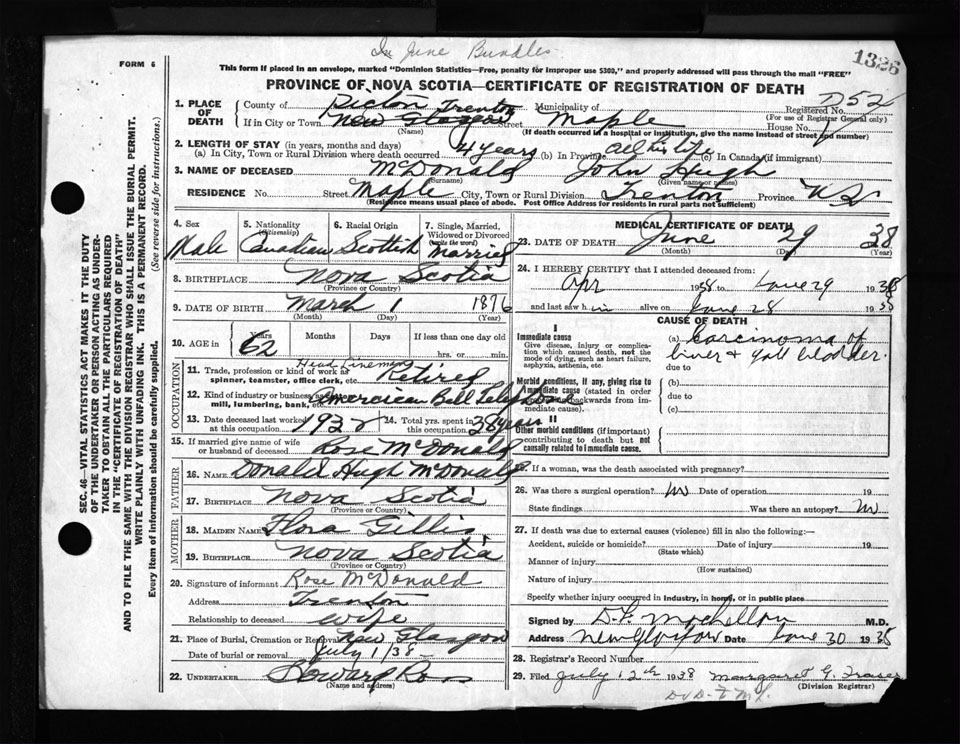 In June Bundles
1326
FORM 6
This form if placed in an envelope, marked "Dominion Statistics—Free, penalty for improper use $300," and properly addressed will pass through the mail "FREE"
PROVINCE OF NOVA SCOTIA—CERTIFICATE OF REGISTRATION OF DEATH
1. PLACE OF DEATH County of Pictou Municipality of Registered No. D52
(For use of Registrar General only)
If in City or Town New Glasgow Trenton Street Maple House No.
(Name) (If death occurred in a hospital or institution, give the name instead of street and number)
2. LENGTH OF STAY (in years, months and days)
(a) In City, Town or Rural Division where death occurred 4 years (b) In Province all his life (c) In Canada (if immigrant)
3. NAME OF DECEASED McDonald John Hugh
(Surname) (Given name or names)
RESIDENCE No. Street Maple City, Town or Rural Division Trenton Province N S
(Residence means usual place of abode. Post Office Address for residents in rural parts not sufficient)
4. Sex 5. Nationality (Citizenship) 6. Racial Origin 7. Single, Married, Widowed or Divorced (write the word)
Male Canadian Scottish married
8. BIRTHPLACE Nova Scotia
(Province or Country)
9. DATE OF BIRTH March 1 1876
(Month) (Day) (Year)
10. AGE in Years Months Days If less than one day old
62 hrs. or min.
OCCUPATION
11. Trade, profession or kind of work as spinner, teamster, office clerk, etc. Head Lineman Retired
12. Kind of industry or business as mill, lumbering, bank, etc. American Bell Telephone
13. Date deceased last worked at this occupation 1932 14. Total yrs. spent in this occupation 38 years
15. If married give name of wife or husband of deceased Rose McDonald
FATHER
16. NAME Donald Hugh McDonald
17. BIRTHPLACE Nova Scotia
(Province or Country)
MOTHER
18. MAIDEN NAME Flora Gillis
19. BIRTHPLACE Nova Scotia
(Province or Country)
20. Signature of informant Rose McDonald
Address Trenton
Relationship to deceased wife
21. Place of Burial, Cremation or Removal New Glasgow
Date of burial or removal July 1/38
22. UNDERTAKER Howard Ross
(Name and address)
MEDICAL CERTIFICATE OF DEATH
23. DATE OF DEATH June 29 38
(Month) (Day) (Year)
24. I HEREBY CERTIFY that I attended deceased from:
Apr 1938 to June 29 1938
and last saw h im alive on June 28 1938
CAUSE OF DEATH
I
Immediate cause
Give disease, injury or complication which caused death, not the mode of dying, such as heart failure, asphyxia, asthenia, etc.
(a) Carcinoma of
liver & gall bladder
due to
Morbid conditions, if any, giving rise to immediate cause (stated in order proceeding backwards from immediate cause).
(b)
due to
(c)
II
Other morbid conditions (if important) contributing to death but not causally related to immediate cause.
25. If a woman, was the death associated with pregnancy?
26. Was there a surgical operation? No Date of operation 19
State findings Was there an autopsy? No
27. If death was due to external causes (violence) fill in also the following:—
Accident, suicide or homicide? Date of injury 19
(State which)
Manner of injury
(How sustained)
Nature of injury
Specify whether injury occurred in industry, in home, or in public place
Signed by M.D.
Address New Glasgow Date June 30 1938
28. Registrar's Record Number
29. Filed July 12th 1938 Margaret G. Fraser
(Division Registrar)
SEC. 46—VITAL STATISTICS ACT MAKES IT THE DUTY
OF THE UNDERTAKER OR PERSON ACTING AS UNDER-
TAKER TO OBTAIN ALL THE PARTICULARS REQUIRED
IN THE "CERTIFICATE OF REGISTRATION OF DEATH"
AND TO FILE THE SAME WITH THE DIVISION REGISTRAR WHO SHALL ISSUE THE BURIAL PERMIT.
WRITE PLAINLY WITH UNFADING INK. THIS IS A PERMANENT RECORD.
Every item of information should be carefully supplied. (See reverse side for instructions.)